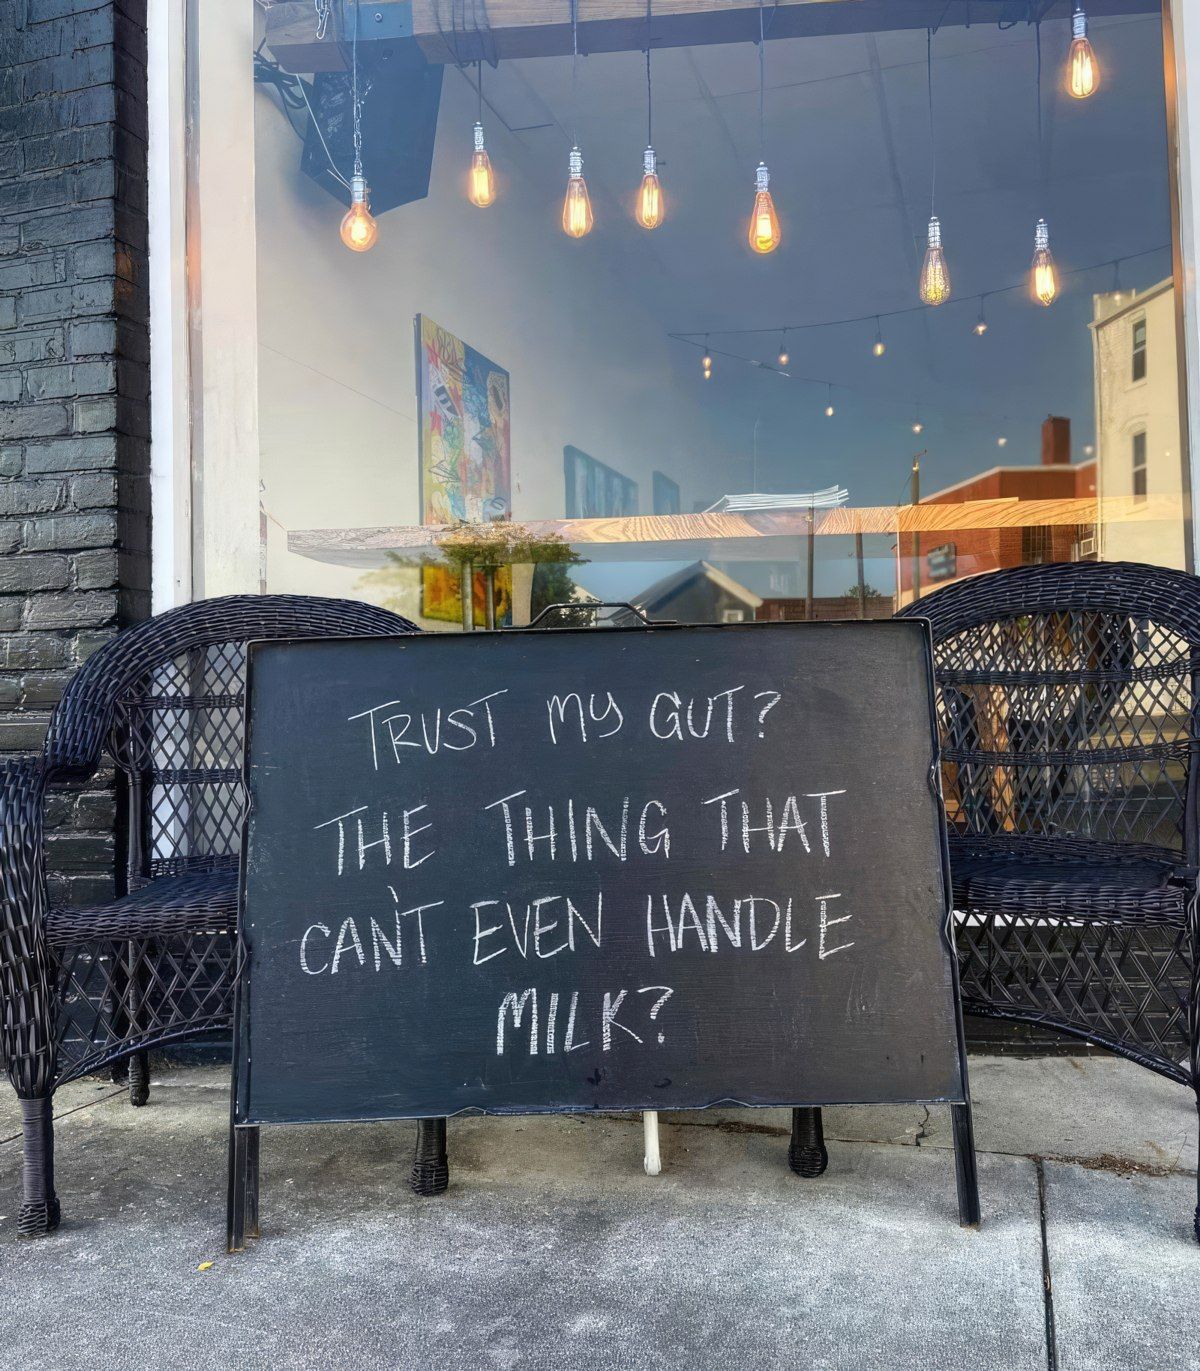 TRUST MY GUT?
THE THING THAT
CAN'T EVEN HANDLE
MILK?